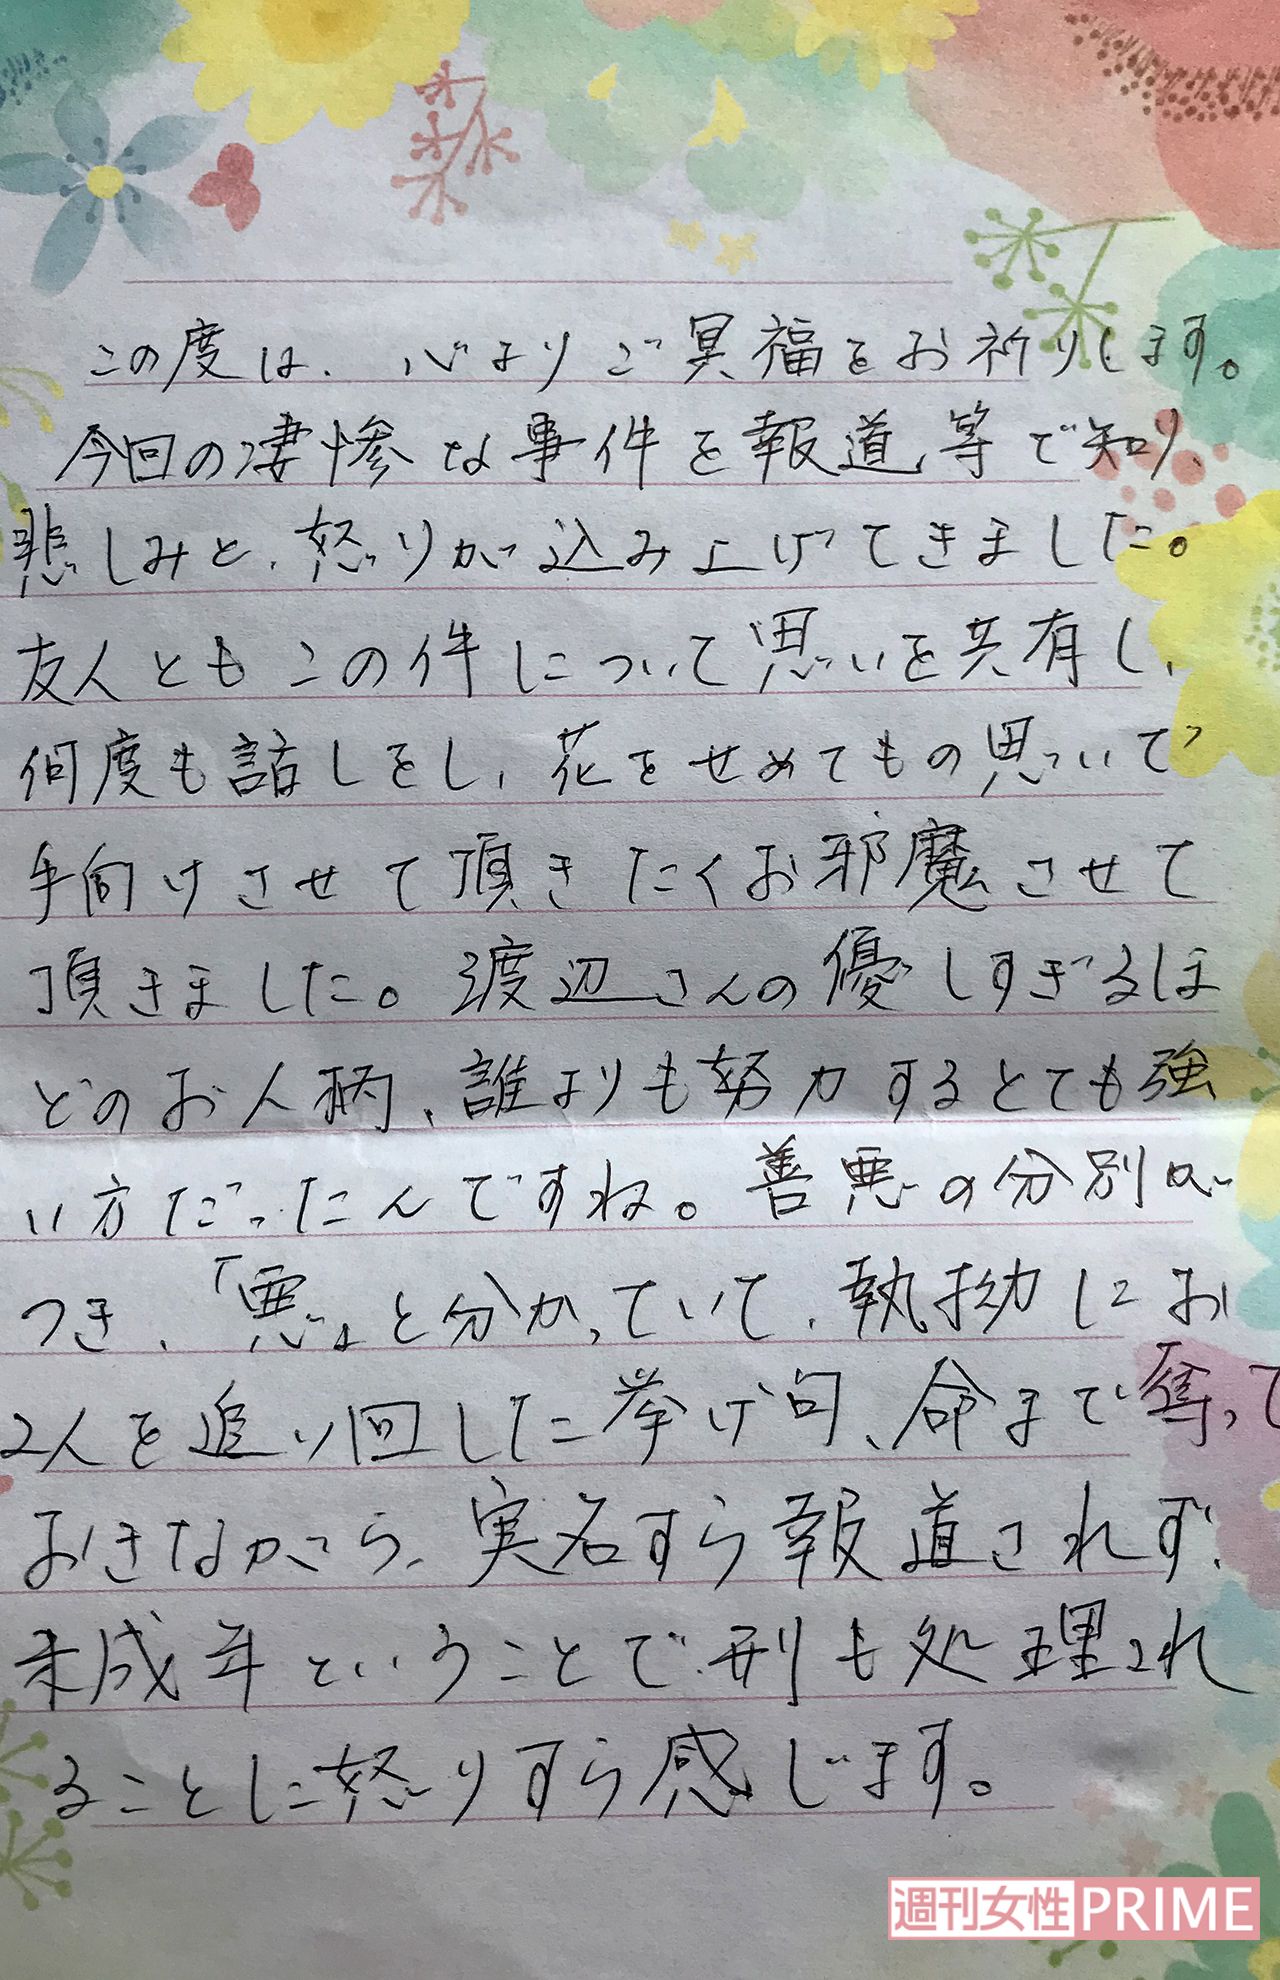 この度は、心よりご冥福をお祈りします。
今回の凄惨な事件を報道等で知り、
悲しみと、怒りが込み上げてきました。
友人ともこの件について思いを共有し、
何度も話しをし、花をせめてもの思いで
手向けさせて頂きたくお邪魔させて
頂きました。渡辺さんの優しすぎるほ
どのお人柄、誰よりも努力するとても強
い方だったんですね。善悪の分別が
つき、「悪」と分かっていて、執拗にお
2人を追い回した挙げ句、命まで奪って
おきながら、実名すら報道されず、
未成年ということで刑も処理され
ることに怒りすら感じます。
週刊女性PRIME